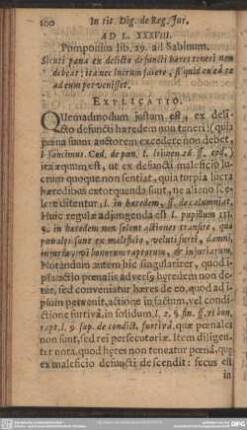 100 In tit. Dig. de Reg. Jur.
AD L. XXXVIII.
Pomponius lib. 29. ad Sabinum.
Sicuti pœna ex delicto defuncti hæres teneri non
debeat: ita nec lucrum facere, si quid ex ea re
ad eum pervenisset.
EXPLICATIO.
QUemadmodum justum est, ex deli-
cto defuncti hæredem non teneri: quia
pœna suum auctorem excedere non debet,
l. sancimus. Cod. de pœn.
ita æquum est, ut ex defuncti maleficio lu-
crum quoque non sentiat, quia turpia lucra
hæredibus extorquenda sunt, ne alieno sce-
lere ditentur, l. in hæredem, ff. de calumniat.
Huic regulæ adjungenda est l. pupillum 111.
§. in hæredem non solent actiones transire, quæ
pœnales sunt ex maleficio, veluti furti, damni,
injuriæ, vi bonorum raptorum, & injuriarum.
Notandum autem hic singulariter, quod li-
cet actio pœnalis adversus hæredem non de-
tur, sed conveniatur hæres de eo, quod ad i-
psum pervenit, actione in factum, vel condi-
ctione furtiva, in solidum,
non sunt, sed rei persecutoriæ. Item diligen-
ter nota, quod hæres non teneatur pœnâ, quæ
ex maleficio defuncti descendit: secus est
in